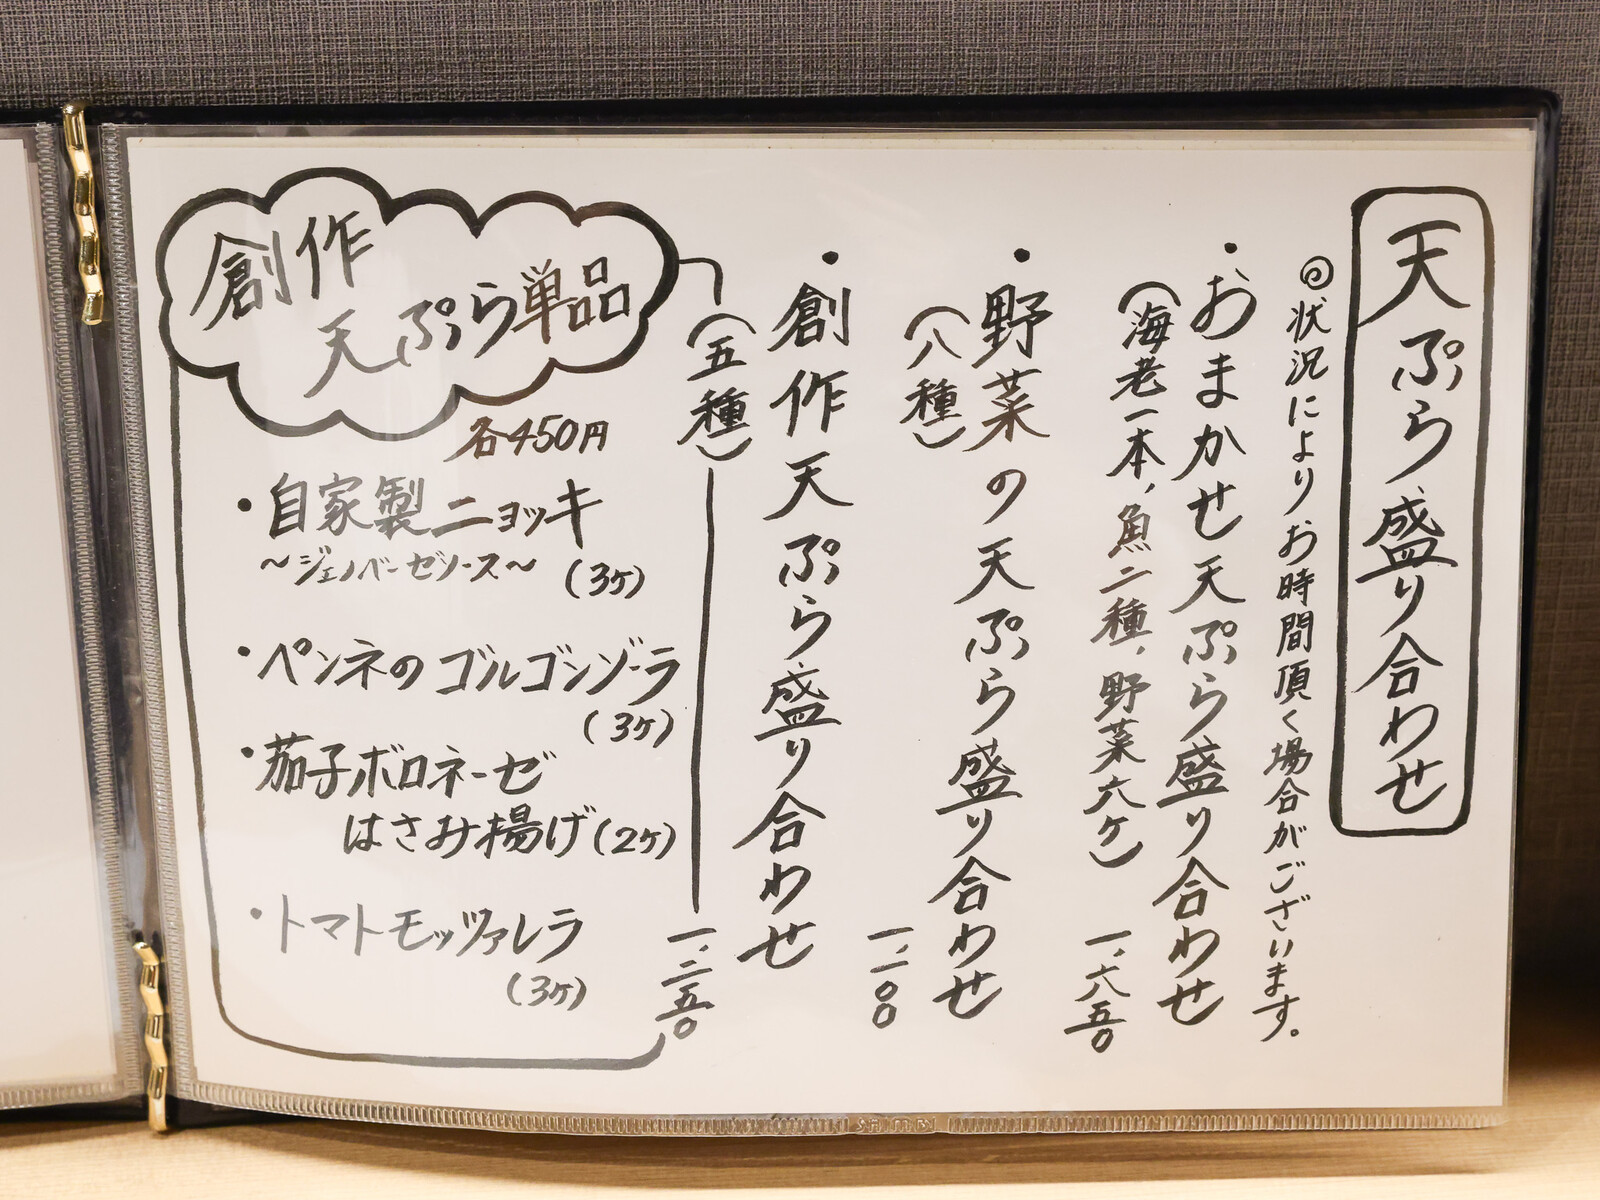 天ぷら盛り合わせ
◎状況によりお時間頂く場合がございます。
・おまかせ天ぷら盛り合わせ
(海老一本、魚二種、野菜六ケ)
一、六五〇
・野菜の天ぷら盛り合わせ
(八種)
一、一〇〇
・創作天ぷら盛り合わせ
(五種)
一、二五〇
創作
天ぷら単品
各450円
・自家製ニョッキ
～ジェノベーゼソース～ (3ヶ)
・ペンネのゴルゴンゾーラ
(3ヶ)
・茄子ボロネーゼ
はさみ揚げ(2ヶ)
・トマトモッツァレラ
(3ヶ)